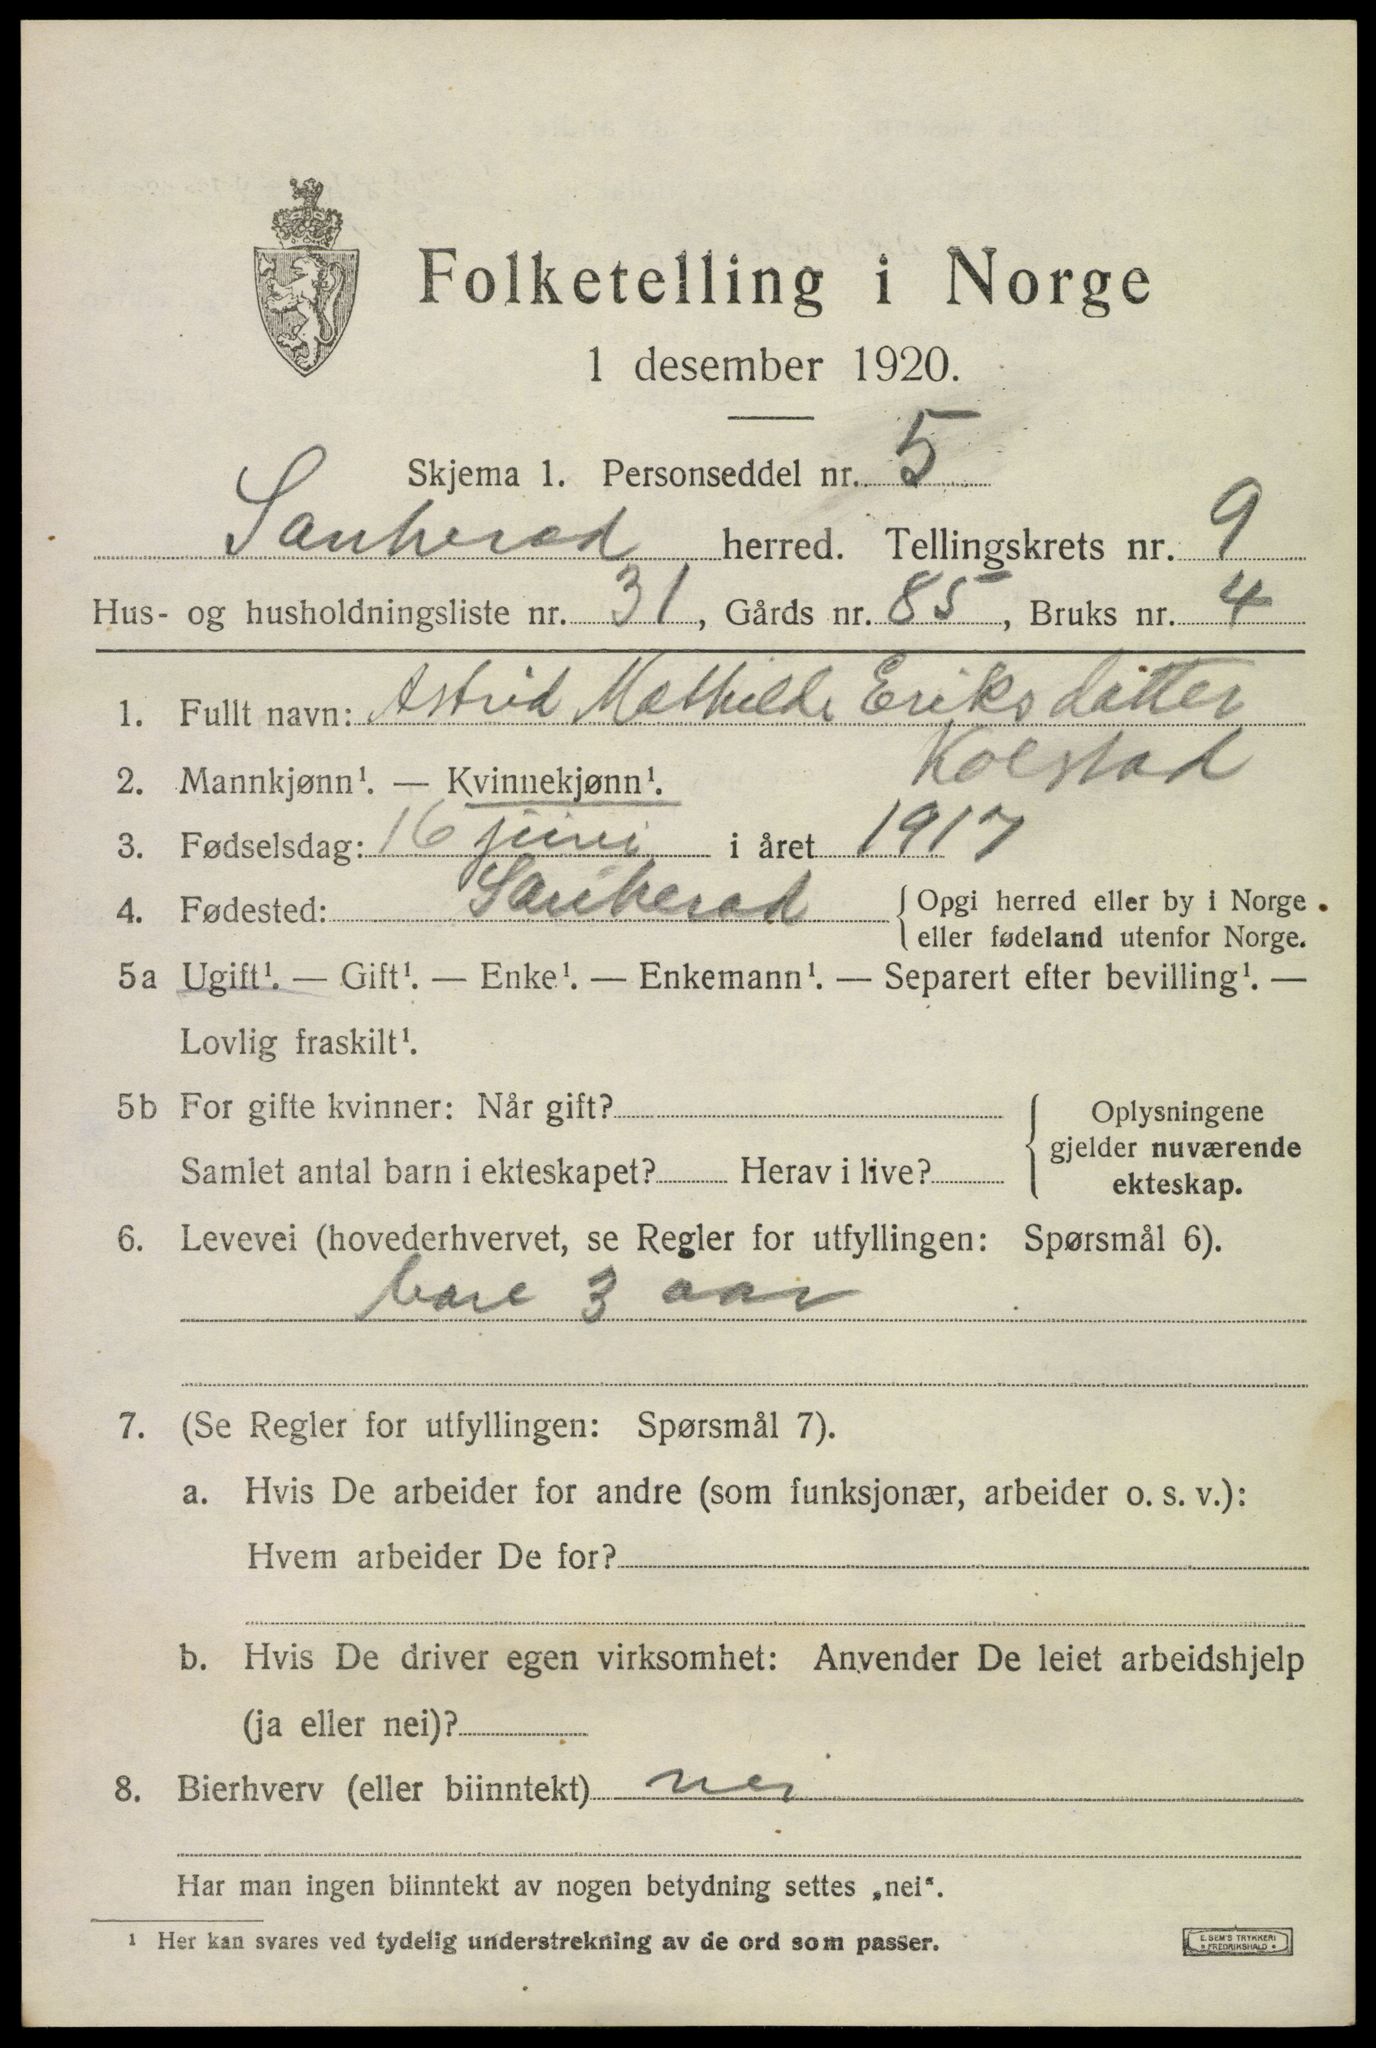 Folketelling i Norge
1 desember 1920.
Skjema 1. Personseddel nr. 5
Sauherad herred. Tellingskrets nr. 9
Hus- og husholdningsliste nr. 31, Gårds nr. 85, Bruks nr. 4
1. Fullt navn: Astrid Mathilde Eriksdatter
Kolstad
2. Mannkjønn¹. — Kvinnekjønn¹.
3. Fødselsdag: 16 juni i året 1917
4. Fødested: Sauherad { Opgi herred eller by i Norge
eller fødeland utenfor Norge.
5a Ugift¹. — Gift¹. — Enke¹. — Enkemann¹. — Separert efter bevilling¹. —
Lovlig fraskilt¹.
5b For gifte kvinner: Når gift?
Samlet antal barn i ekteskapet? Herav i live?
Oplysningene
gjelder nuværende
ekteskap.
6. Levevei (hovederhvervet, se Regler for utfyllingen: Spørsmål 6).
bare 3 aar
7. (Se Regler for utfyllingen: Spørsmål 7).
a. Hvis De arbeider for andre (som funksjonær, arbeider o. s. v.):
Hvem arbeider De for?
b. Hvis De driver egen virksomhet: Anvender De leiet arbeidshjelp
(ja eller nei)?
8. Bierhverv (eller biinntekt) nei
Har man ingen biinntekt av nogen betydning settes „nei".
¹ Her kan svares ved tydelig understrekning av de ord som passer.
E. SEM'S TRYKKERI
* FREDRIKSHALD *